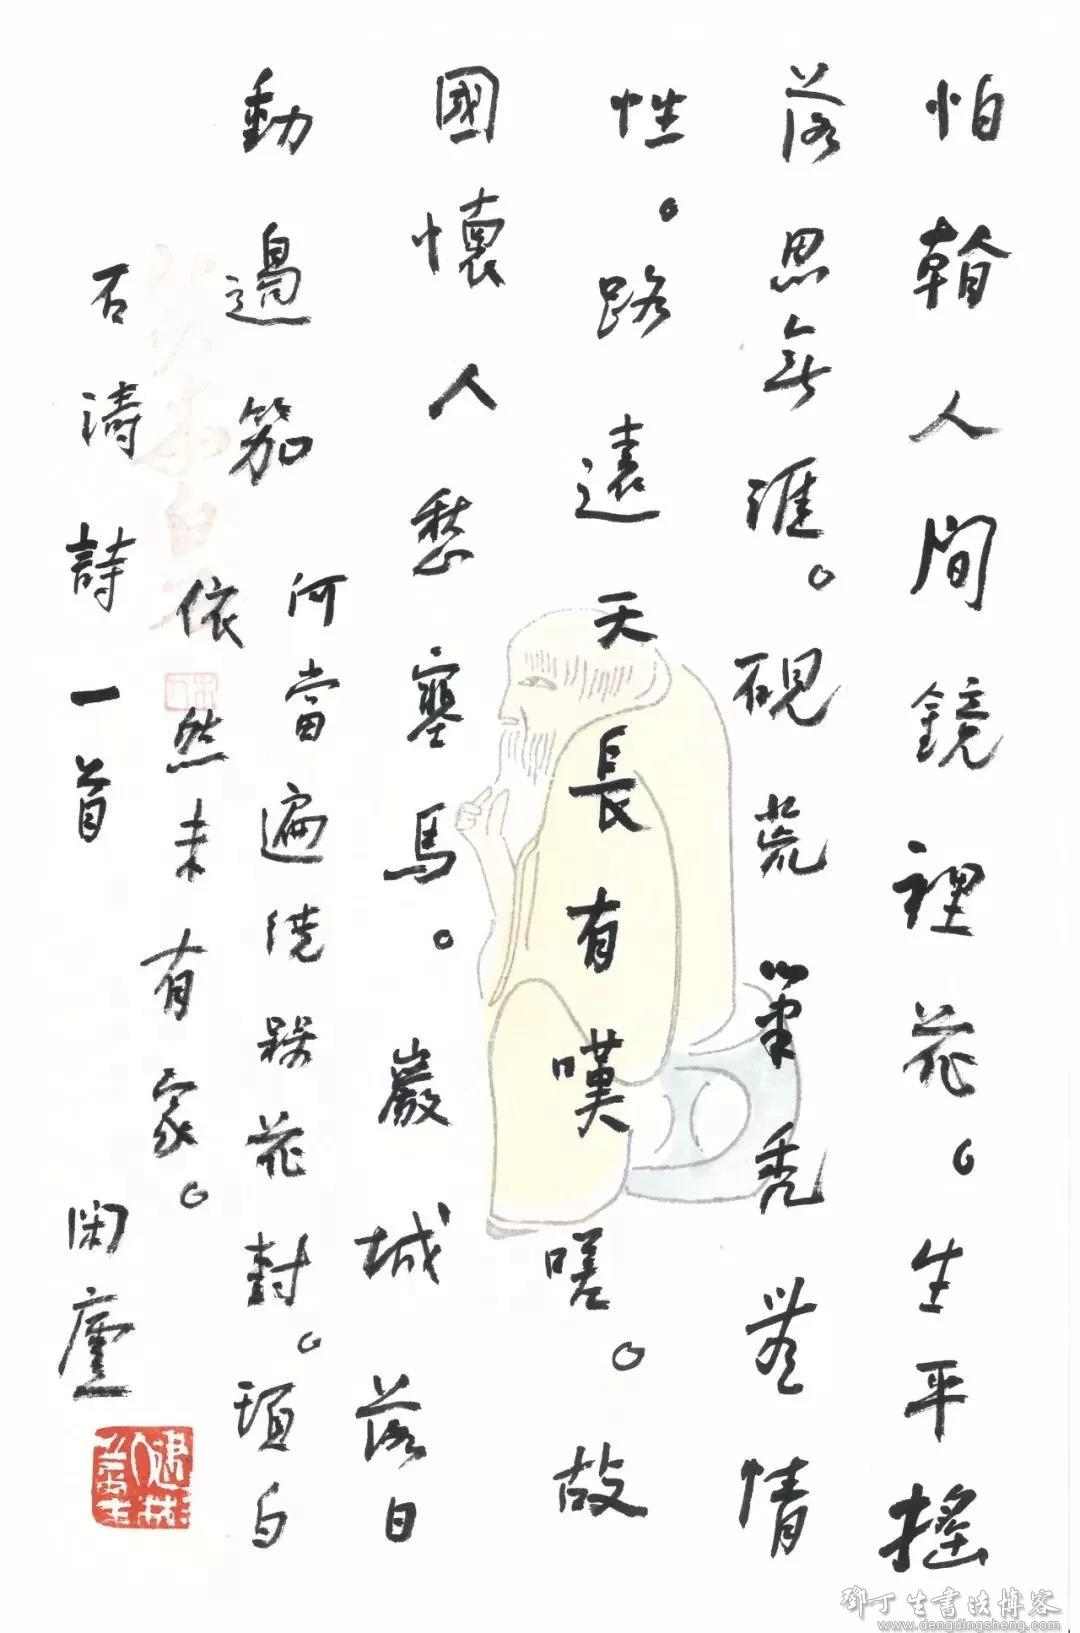 怕看人間鏡裡花。生平搖
落思無涯。硯荒筆禿無情
性。路遠天長有嘆嗟。故
國懷人愁塞馬。巖城落日
動邊笳
何當遍繞槑花封。頭白
依然未有家。
石濤詩一首 閑廬
鄧丁生書法博客
www.dengdingsheng.com